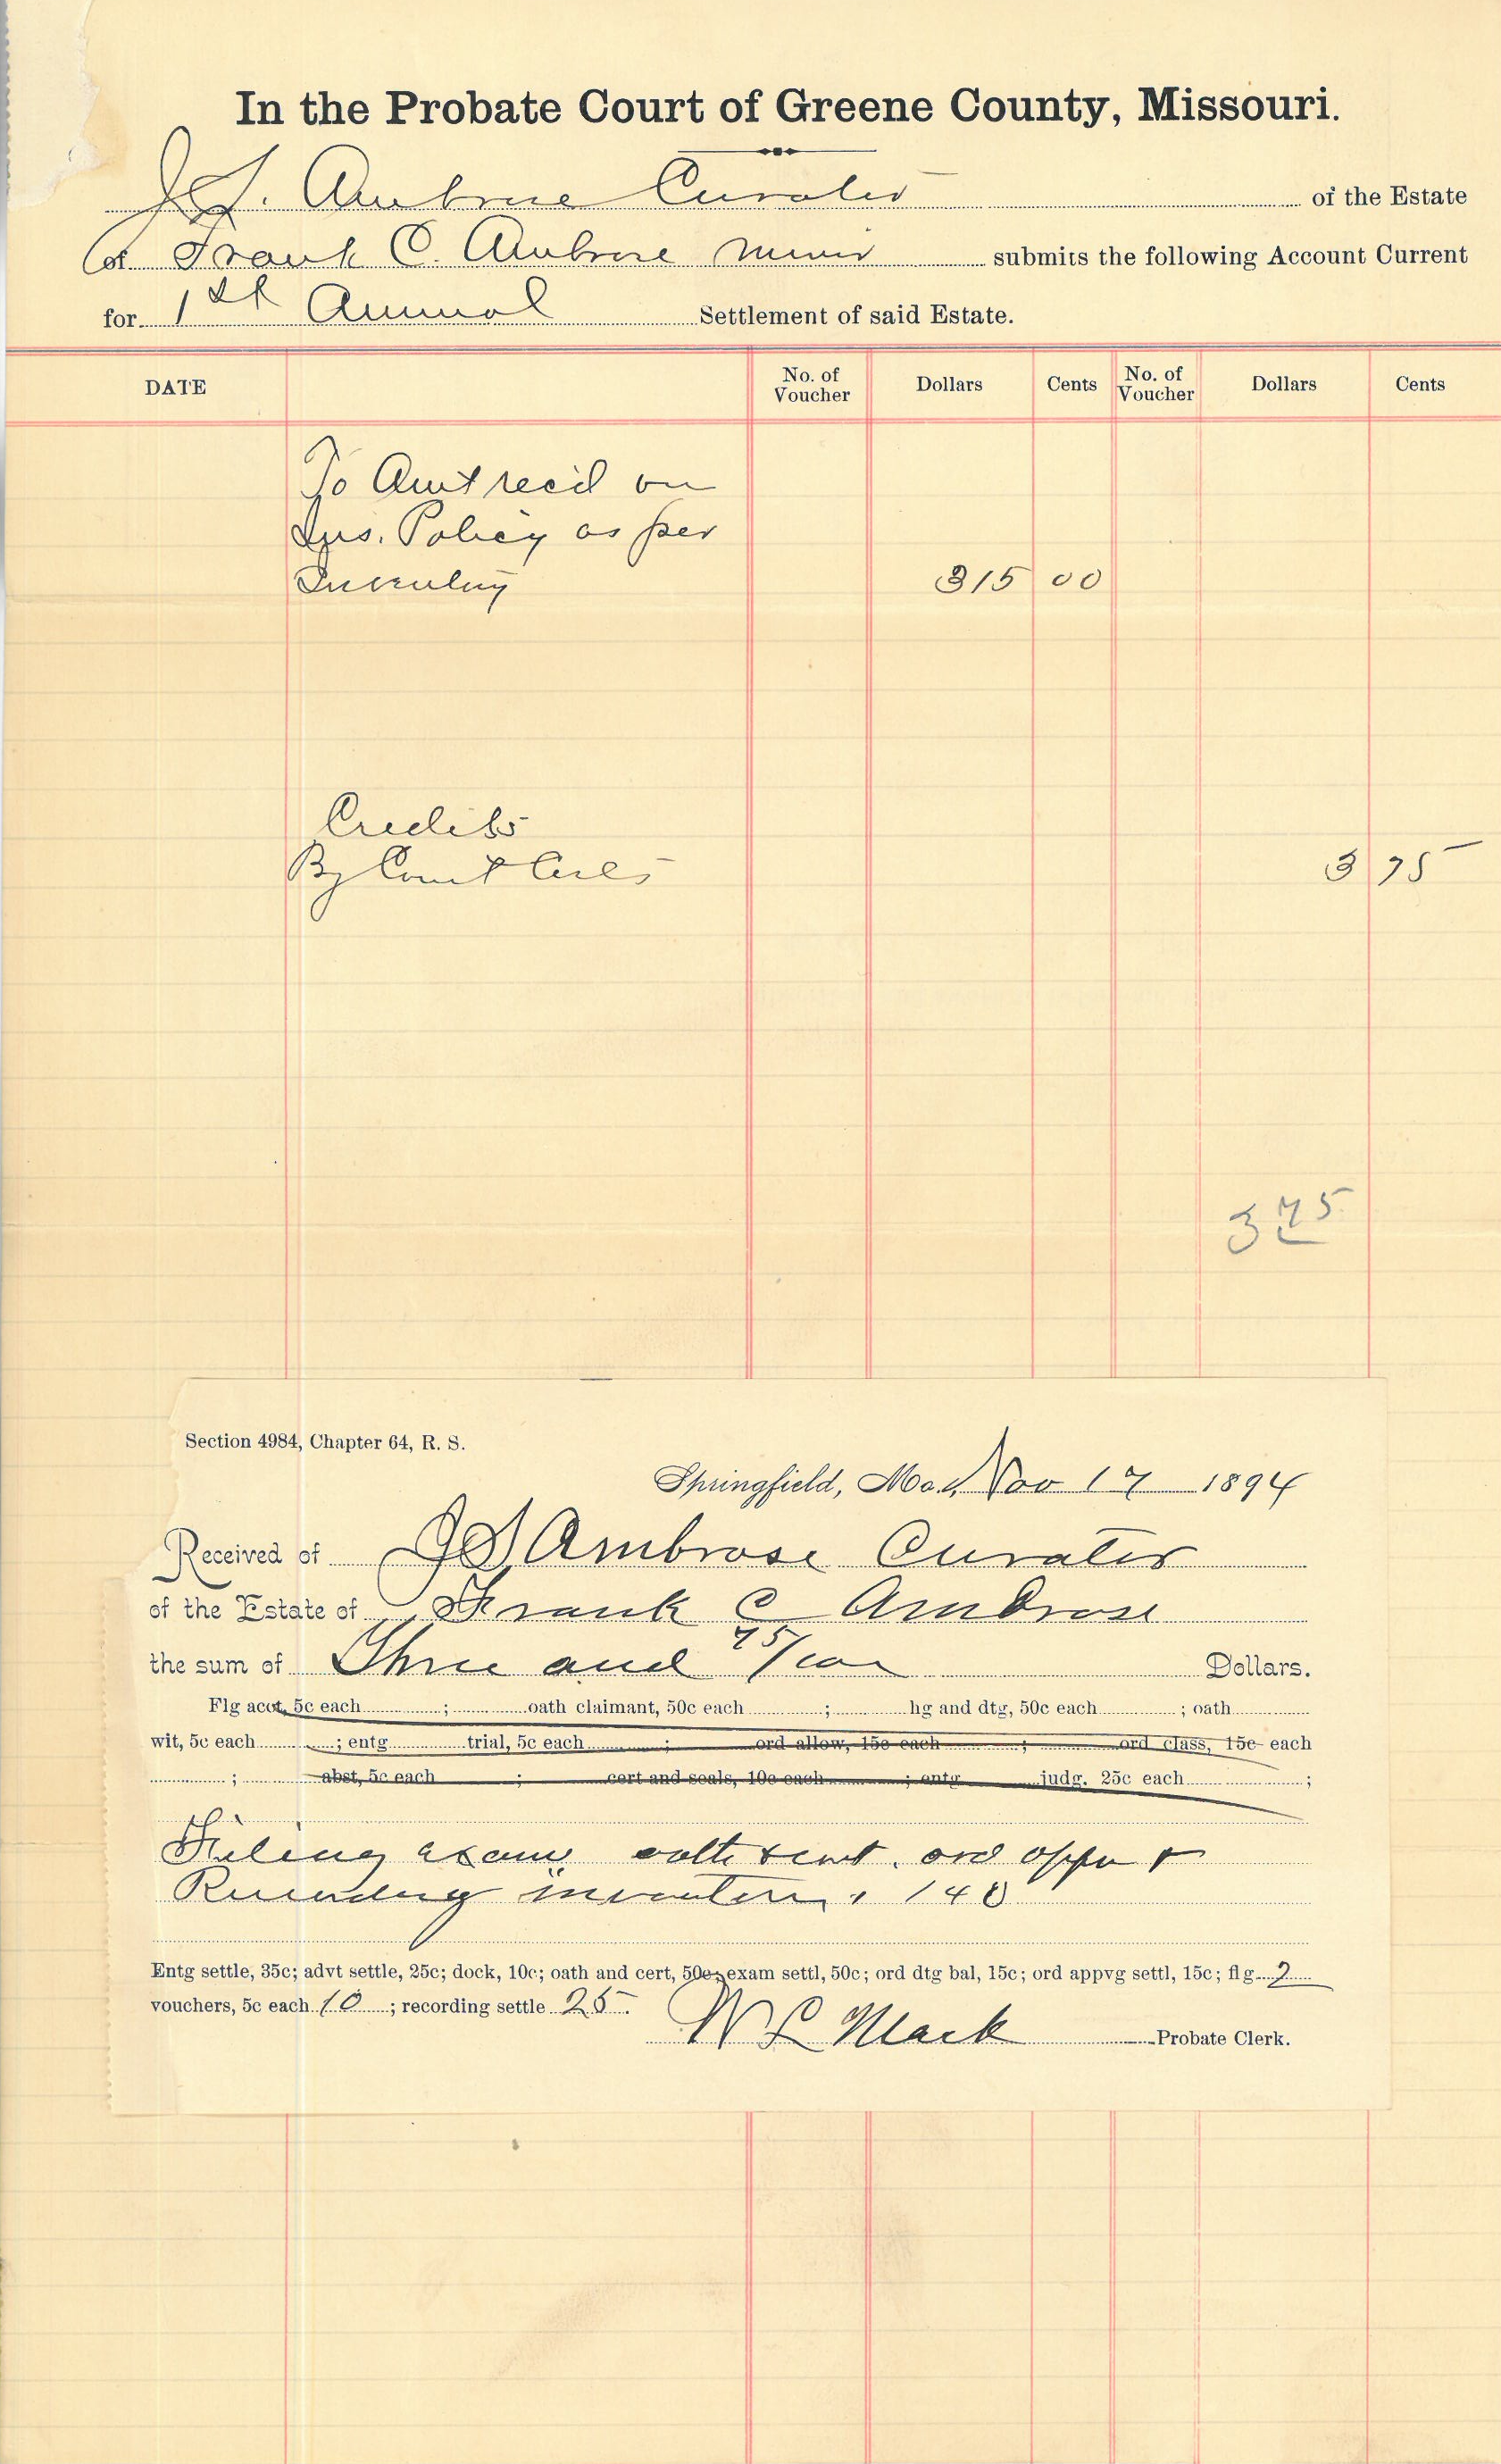 In the Probate Court of Greene County, Missouri.
J.S. Ambrose Curator of the Estate
of Frank C. Ambrose minor submits the following Account Current
for 1st Annual Settlement of said Estate.
DATE No. of Voucher Dollars Cents No. of Voucher Dollars Cents
To Amt rec'd on
Ins. Policy as per
Inventory 315 00
Credits
By Court Costs 3 75
3 75
Section 4984, Chapter 64, R. S.
Springfield, Mo., Nov 17 1894
Received of J S Ambrose Curator
of the Estate of Frank C Ambrose
the sum of Three and 75/100 Dollars.
Flg acct, 5c each ; oath claimant, 50c each ; hg and dtg, 50c each ; oath
wit, 5c each ; entg trial, 5c each ; ord allow, 15c each ; ord class, 15c each
; abst, 5c each ; cert and seals, 10c each ; entg judg. 25c each ;
Filing exam oath & cert. ord appr &
Recording inventory, 140
Entg settle, 35c; advt settle, 25c; dock, 10c; oath and cert, 50c; exam settl, 50c; ord dtg bal, 15c; ord appvg settl, 15c; flg 2
vouchers, 5c each 10 ; recording settle 25.
W L Mack Probate Clerk.